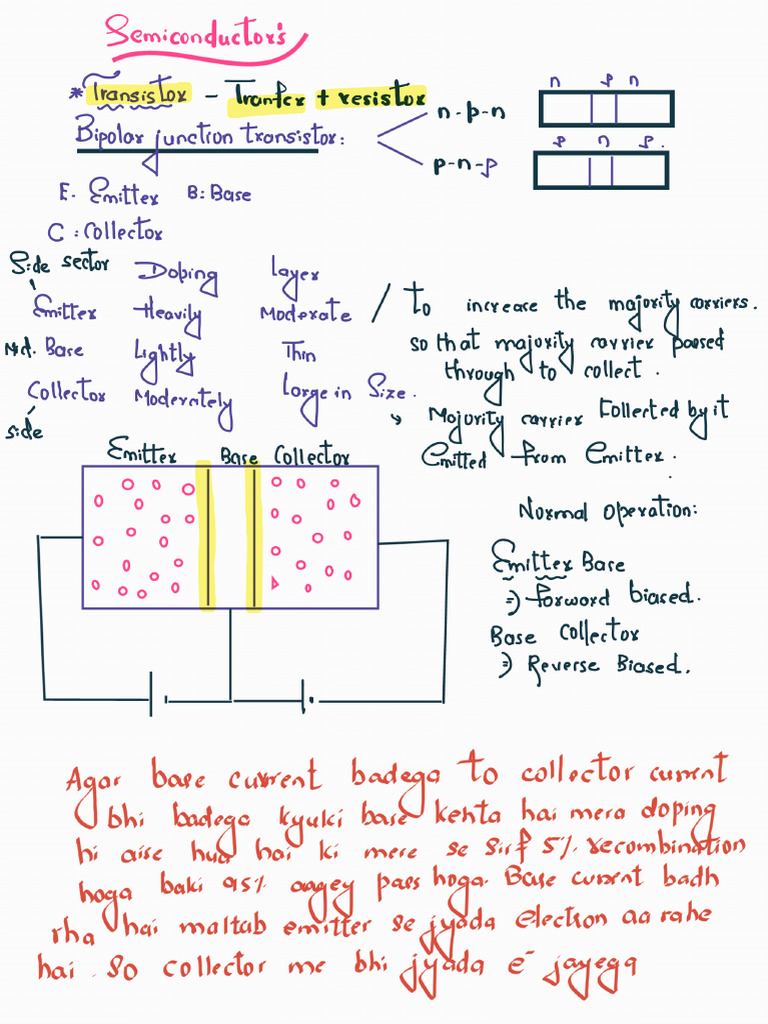 Semiconductor's
* Transistor - Tranfer + resistor
Bipolar junction transistor:
n-p-n
p-n-p
n p n
p n p.
E. Emitter B: Base
C : Collector
Side sector Doping layer
Emitter Heavily Moderate
Mid. Base Lightly Thin
Collector Moderately Large in Size.
side
/ To increase the majority carriers.
so that majority carrier passed
through to collect.
Majority carrier Follected by it
Emitted from Emitter.
Emitter Base Collector
Normal Operation:
Emitter Base
=) forward biased.
Base Collector
=) Reverse Biased.
Agar base current badega to collector current
bhi badega kyuki base kehta hai mera doping
hi aise hua hai ki mere se sirf 5% recombination
hoga baki 95% aagey pass hoga. Base current badh
rha hai maltab emitter se jyada election aa rahe
hai. So collector me bhi jyada e⁻ jayega